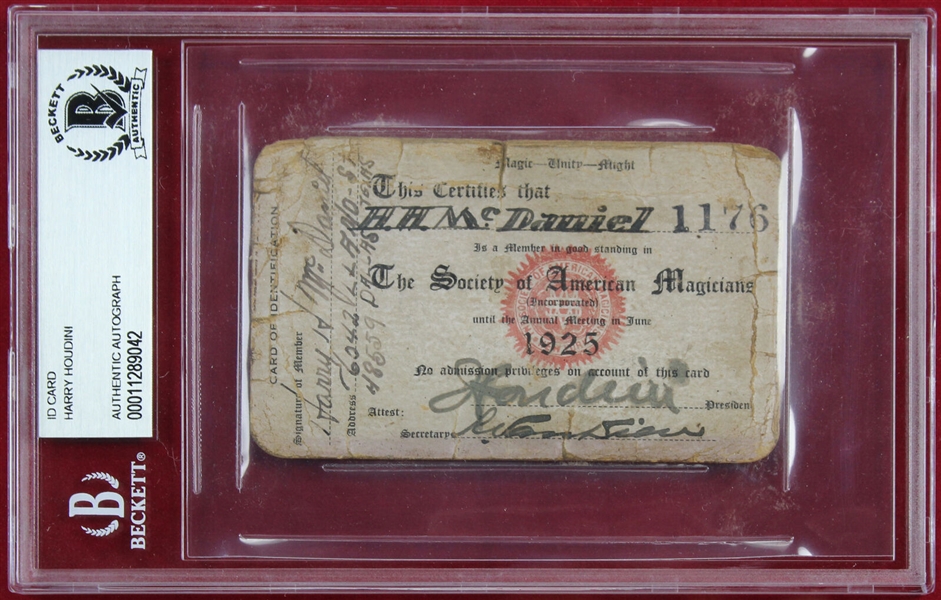 BECKETT
B
AUTHENTIC
ID CARD
HARRY HOUDINI
AUTHENTIC AUTOGRAPH
00011289042
B
BECKETT®
CARD OF IDENTIFICATION
Signature of Member
Harry A Mc Daniel
Address
Magic—Unity—Might
This Certifies that
H A Mc Daniel 1176
Is a Member in good standing in
The Society of American Magicians
(Incorporated)
until the Annual Meeting in June
1925
No admission privileges on account of this card
Houdini
President
Attest:
Secretary
SOCIETY OF AMERICAN MAGICIANS